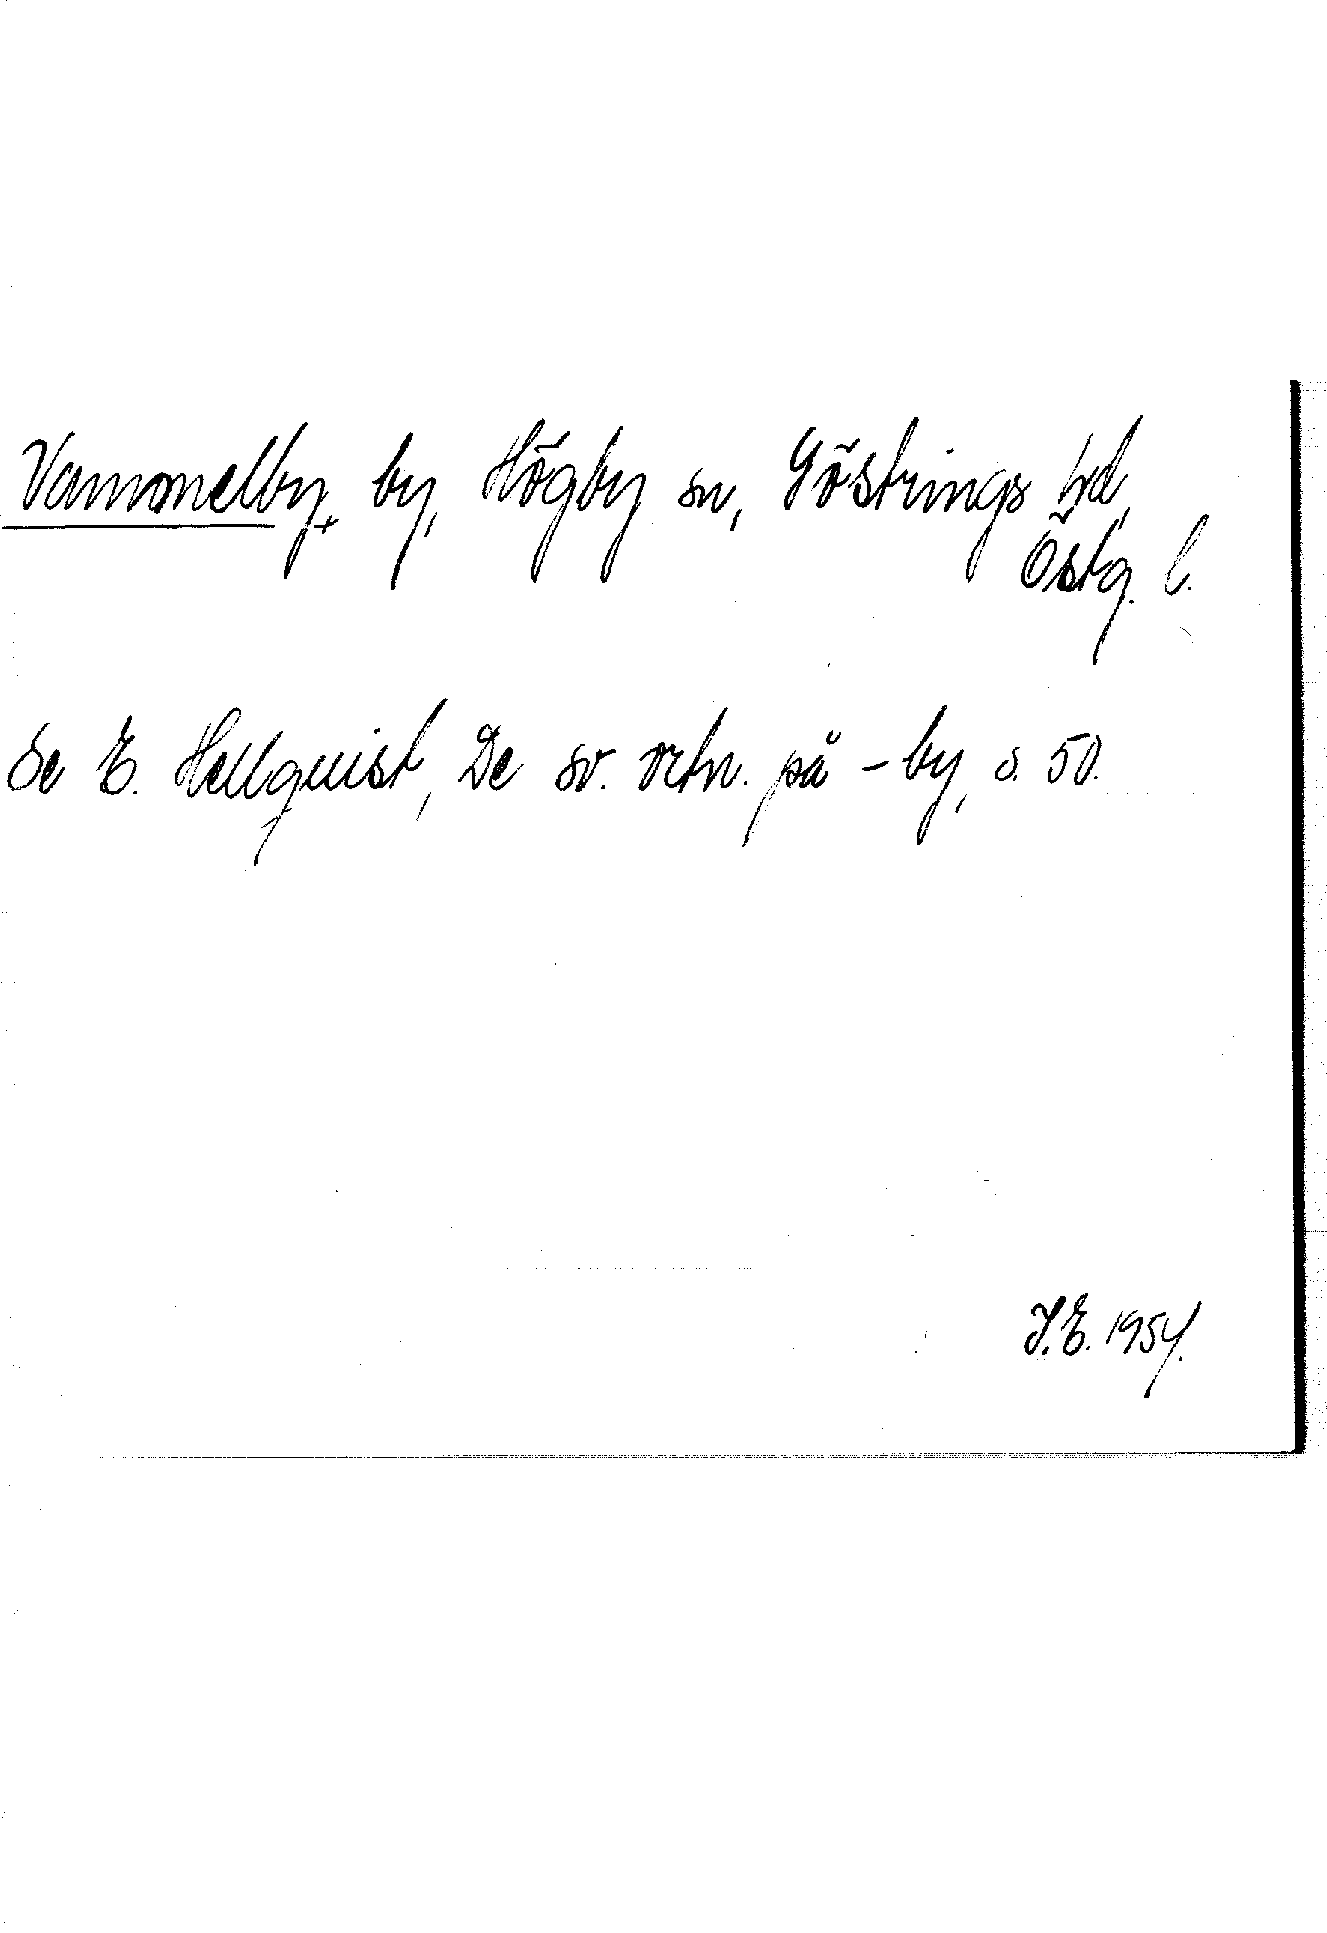 Vammelby, by, Högby sn, Göstrings hd,
Östg. l.
Se E. Hellquist, De sv. ortn. på -by, s. 50.
I.E. 1954.